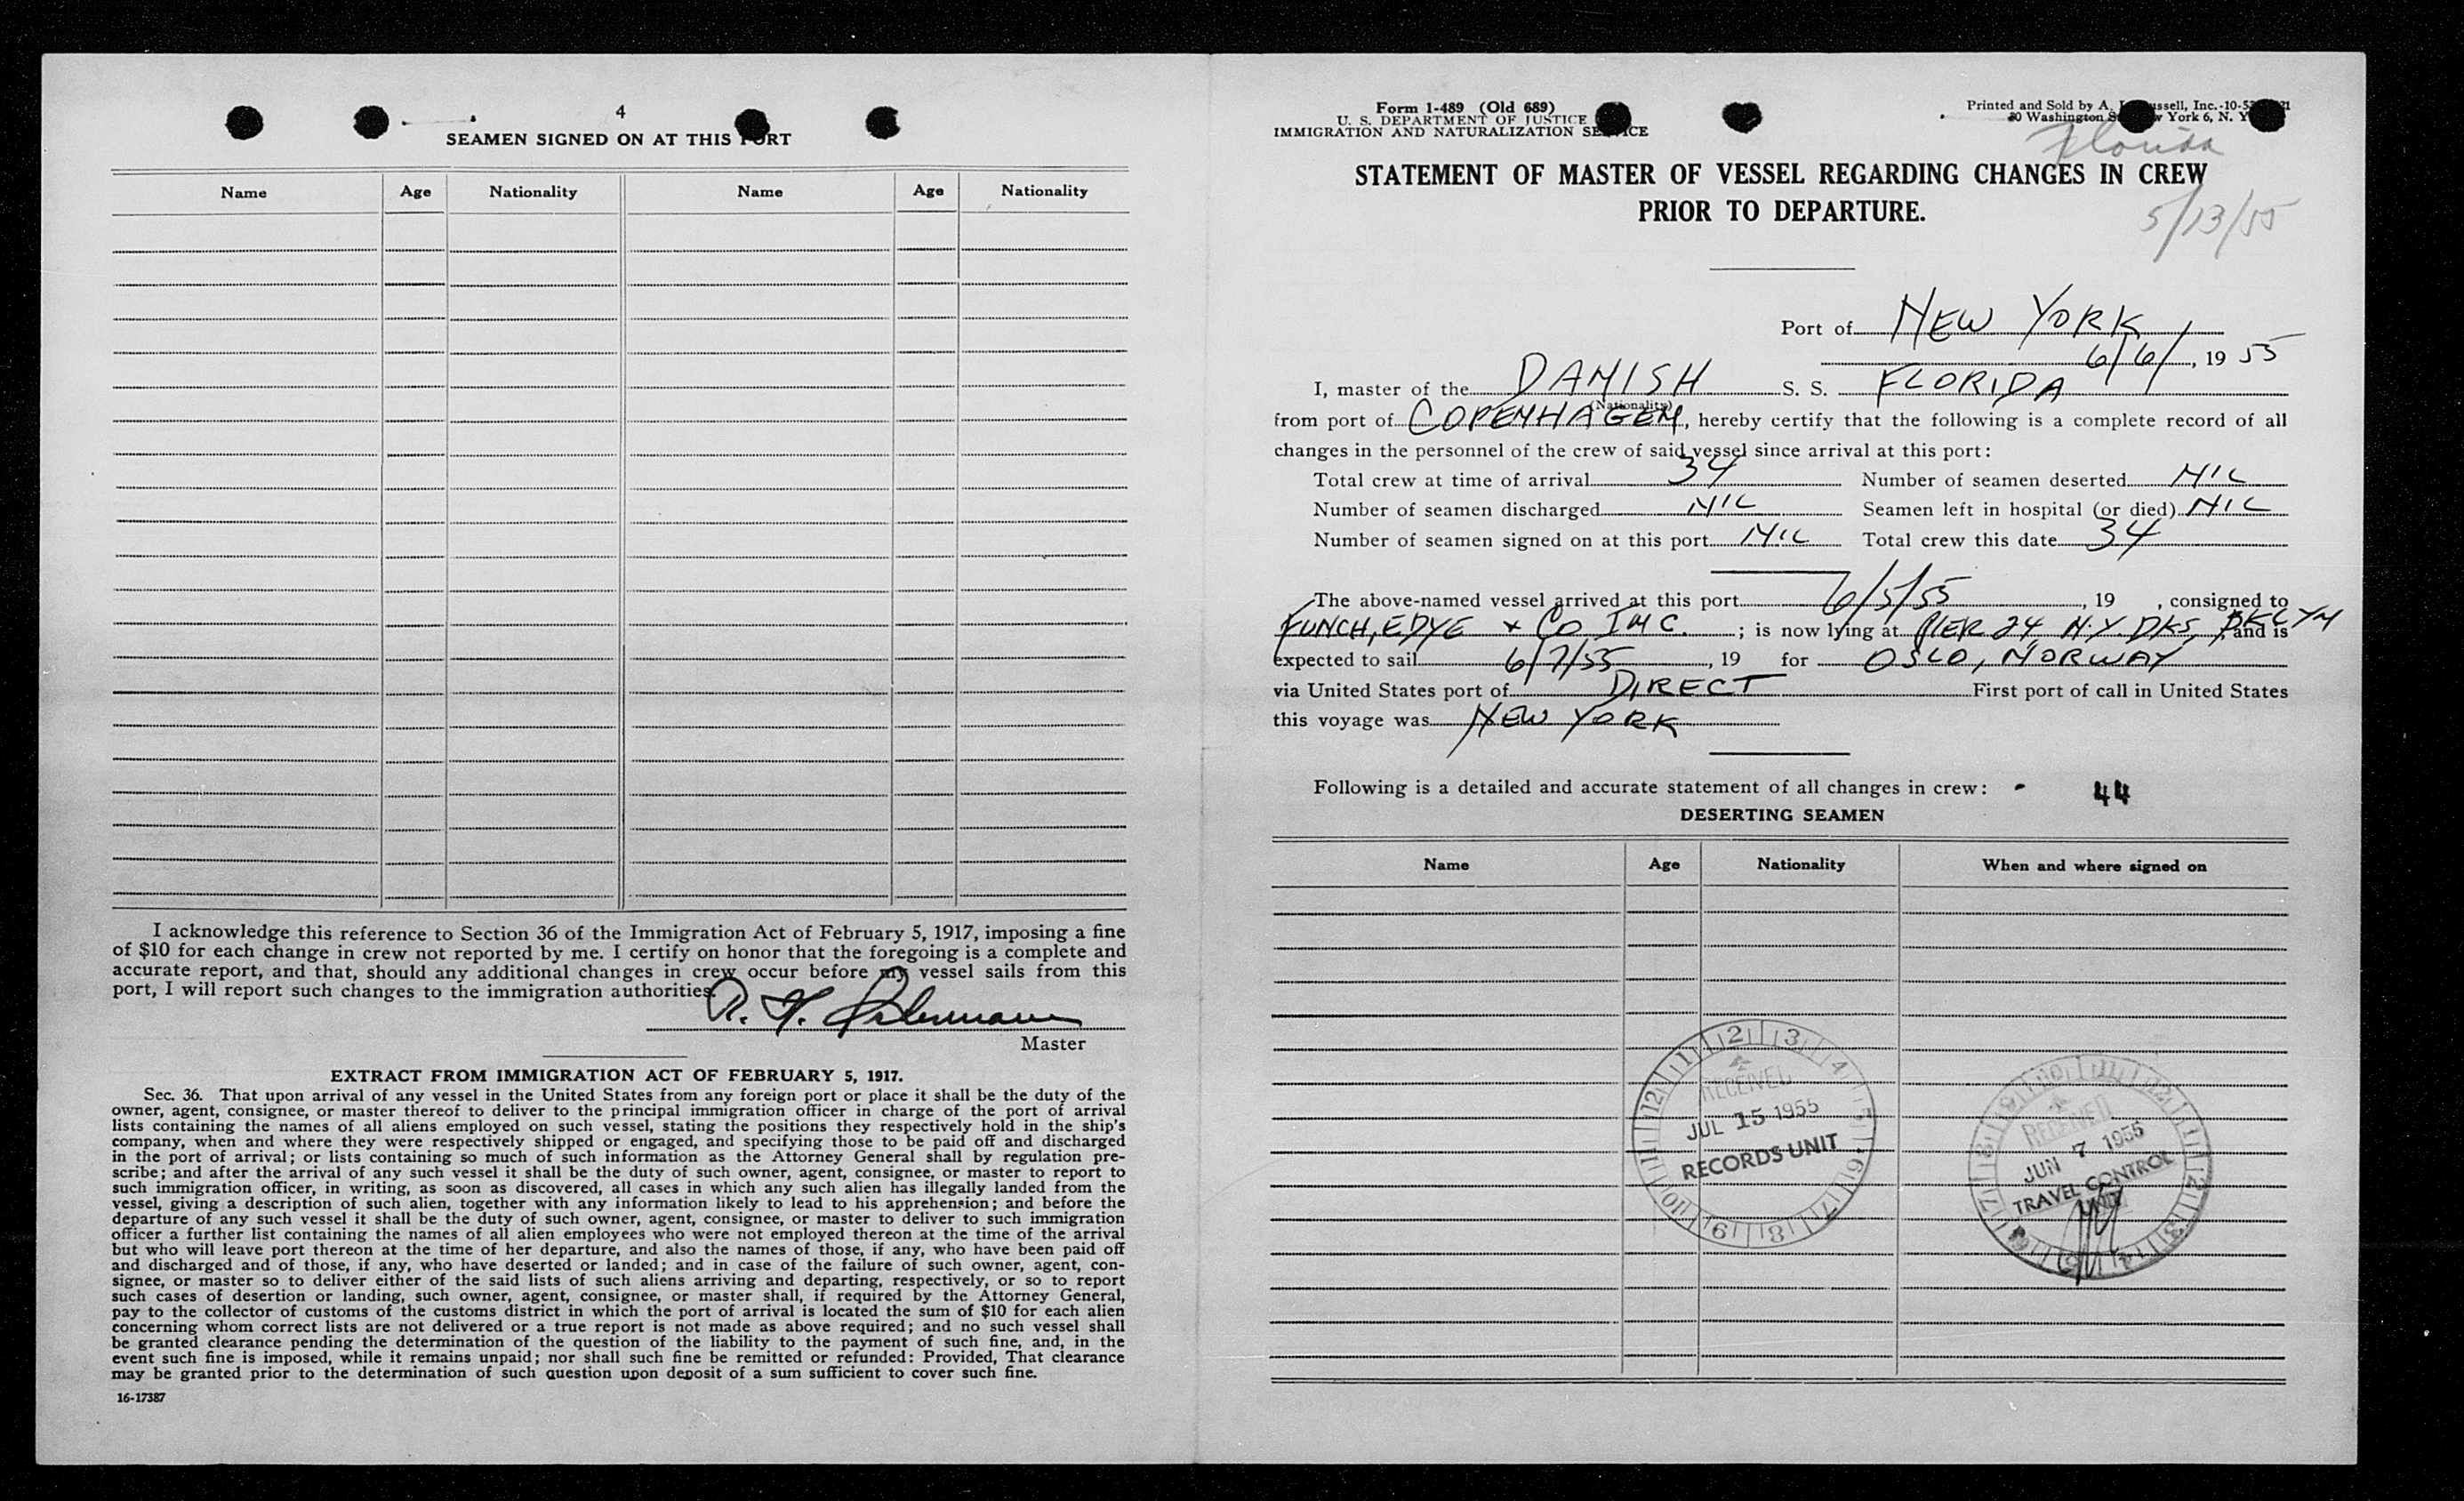 4
SEAMEN SIGNED ON AT THIS PORT
Name Age Nationality Name Age Nationality
I acknowledge this reference to Section 36 of the Immigration Act of February 5, 1917, imposing a fine
of $10 for each change in crew not reported by me. I certify on honor that the foregoing is a complete and
accurate report, and that, should any additional changes in crew occur before my vessel sails from this
port, I will report such changes to the immigration authorities.
Master
EXTRACT FROM IMMIGRATION ACT OF FEBRUARY 5, 1917.
Sec. 36. That upon arrival of any vessel in the United States from any foreign port or place it shall be the duty of the
owner, agent, consignee, or master thereof to deliver to the principal immigration officer in charge of the port of arrival
lists containing the names of all aliens employed on such vessel, stating the positions they respectively hold in the ship's
company, when and where they were respectively shipped or engaged, and specifying those to be paid off and discharged
in the port of arrival; or lists containing so much of such information as the Attorney General shall by regulation pre-
scribe; and after the arrival of any such vessel it shall be the duty of such owner, agent, consignee, or master to report to
such immigration officer, in writing, as soon as discovered, all cases in which any such alien has illegally landed from the
vessel, giving a description of such alien, together with any information likely to lead to his apprehension; and before the
departure of any such vessel it shall be the duty of such owner, agent, consignee, or master to deliver to such immigration
officer a further list containing the names of all alien employees who were not employed thereon at the time of the arrival
but who will leave port thereon at the time of her departure, and also the names of those, if any, who have been paid off
and discharged and of those, if any, who have deserted or landed; and in case of the failure of such owner, agent, con-
signee, or master so to deliver either of the said lists of such aliens arriving and departing, respectively, or so to report
such cases of desertion or landing, such owner, agent, consignee, or master shall, if required by the Attorney General,
pay to the collector of customs of the customs district in which the port of arrival is located the sum of $10 for each alien
concerning whom correct lists are not delivered or a true report is not made as above required; and no such vessel shall
be granted clearance pending the determination of the question of the liability to the payment of such fine, and, in the
event such fine is imposed, while it remains unpaid; nor shall such fine be remitted or refunded: Provided, That clearance
may be granted prior to the determination of such question upon deposit of a sum sufficient to cover such fine.
16-17387
Form I-489 (Old 689)
U. S. DEPARTMENT OF JUSTICE
IMMIGRATION AND NATURALIZATION SERVICE
Printed and Sold by A.
Washington York 6, N. Y.
Florida
STATEMENT OF MASTER OF VESSEL REGARDING CHANGES IN CREW
PRIOR TO DEPARTURE.
5/13/55
Port of NEW YORK
6/6/, 19 55
I, master of the DANISH S. S. FLORIDA
(Nationality)
from port of COPENHAGEN, hereby certify that the following is a complete record of all
changes in the personnel of the crew of said vessel since arrival at this port:
Total crew at time of arrival 34 Number of seamen deserted NIL
Number of seamen discharged NIL Seamen left in hospital (or died) NIL
Number of seamen signed on at this port NIL Total crew this date 34
The above-named vessel arrived at this port 6/5/55, 19 , consigned to
FUNCH, EDYE + CO INC. ; is now lying at PIER 24 N.Y. DKS, BKLYN, and is
expected to sail 6/7/55, 19 for OSLO, NORWAY
via United States port of DIRECT First port of call in United States
this voyage was NEW YORK
Following is a detailed and accurate statement of all changes in crew: - 44
DESERTING SEAMEN
Name Age Nationality When and where signed on
12 1 2 3 4 5 6 7 8 9 10 11
RECEIVED
JUL 15 1955
RECORDS UNIT
RECEIVED
JUN 7 1955
TRAVEL CONTROL
UNIT